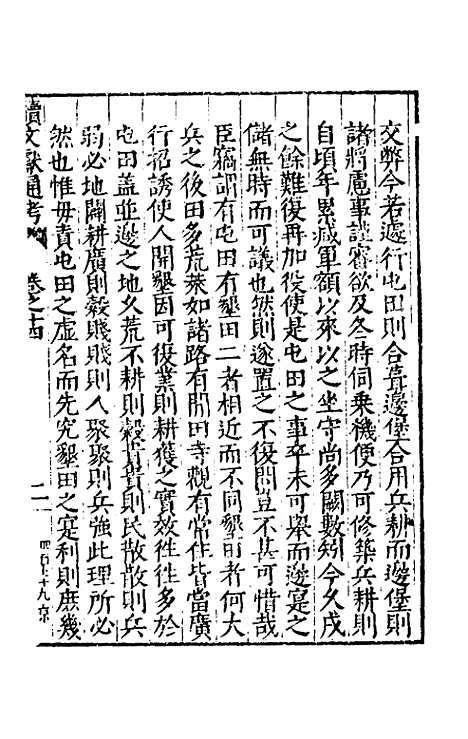 交弊今若遽行屯田則合葺邊堡合用兵耕而邊堡則
諸將慮事謹審欲及冬時伺乗機便乃可修築兵耕則
自頃年累减軍額以來以之坐守尚多闕數矧今久戍
之餘難復再加役使是屯田之事卒未可舉而邊寔之
儲無時而可議也然則遂置之不復問豈不甚可惜哉
臣竊謂有屯田有墾田二者相近而不同墾田者何大
兵之後田多荒萊如諸路有閒田寺觀有常住皆當廣
行招誘使人開墾因可復業則耕獲之實效徃徃多於
屯田蓋並邊之地久荒不耕則穀貴貴則民散散則兵
弱必地闢耕廣則穀賤賤則人聚聚則兵強此理所必
然也惟毋責屯田之虛名而先究墾田之寔利則庶幾
續文獻通考 卷之十四